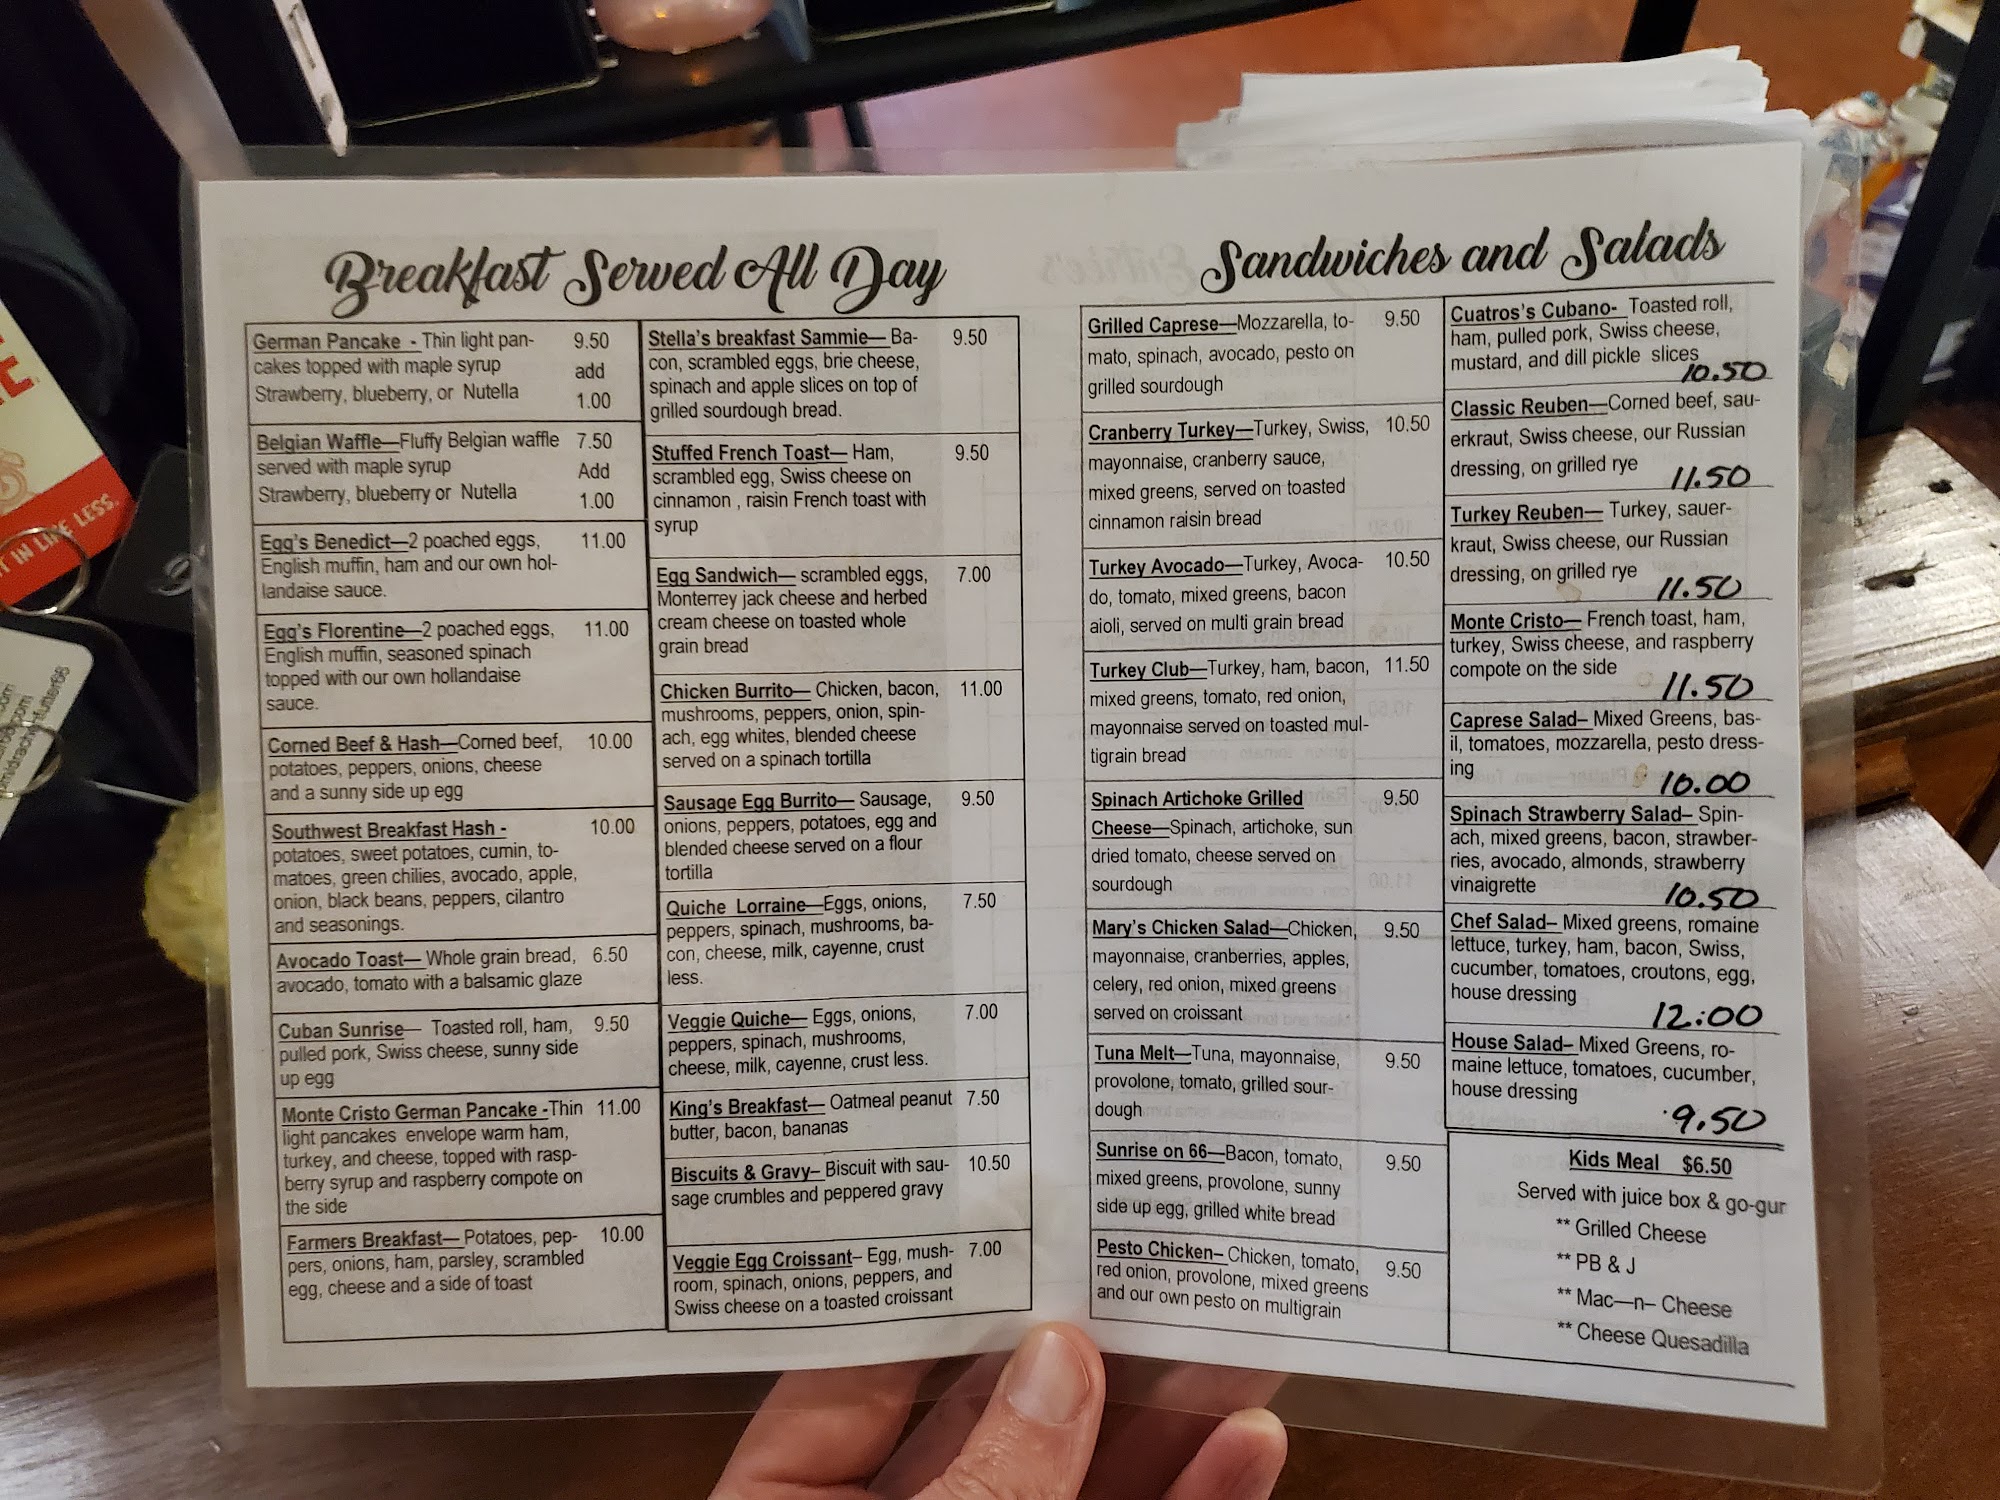 Breakfast Served All Day
German Pancake - Thin light pan- 9.50
cakes topped with maple syrup add
Strawberry, blueberry, or Nutella 1.00
Belgian Waffle—Fluffy Belgian waffle 7.50
served with maple syrup Add
Strawberry, blueberry or Nutella 1.00
Egg's Benedict—2 poached eggs, 11.00
English muffin, ham and our own hol-
landaise sauce.
Egg's Florentine—2 poached eggs, 11.00
English muffin, seasoned spinach
topped with our own hollandaise
sauce.
Corned Beef & Hash—Corned beef, 10.00
potatoes, peppers, onions, cheese
and a sunny side up egg
Southwest Breakfast Hash - 10.00
potatoes, sweet potatoes, cumin, to-
matoes, green chilies, avocado, apple,
onion, black beans, peppers, cilantro
and seasonings.
Avocado Toast— Whole grain bread, 6.50
avocado, tomato with a balsamic glaze
Cuban Sunrise— Toasted roll, ham, 9.50
pulled pork, Swiss cheese, sunny side
up egg
Monte Cristo German Pancake -Thin 11.00
light pancakes envelope warm ham,
turkey, and cheese, topped with rasp-
berry syrup and raspberry compote on
the side
Farmers Breakfast— Potatoes, pep- 10.00
pers, onions, ham, parsley, scrambled
egg, cheese and a side of toast
Stella's breakfast Sammie— Ba- 9.50
con, scrambled eggs, brie cheese,
spinach and apple slices on top of
grilled sourdough bread.
Stuffed French Toast— Ham, 9.50
scrambled egg, Swiss cheese on
cinnamon , raisin French toast with
syrup
Egg Sandwich— scrambled eggs, 7.00
Monterrey jack cheese and herbed
cream cheese on toasted whole
grain bread
Chicken Burrito— Chicken, bacon, 11.00
mushrooms, peppers, onion, spin-
ach, egg whites, blended cheese
served on a spinach tortilla
Sausage Egg Burrito— Sausage, 9.50
onions, peppers, potatoes, egg and
blended cheese served on a flour
tortilla
Quiche Lorraine—Eggs, onions, 7.50
peppers, spinach, mushrooms, ba-
con, cheese, milk, cayenne, crust
less.
Veggie Quiche— Eggs, onions, 7.00
peppers, spinach, mushrooms,
cheese, milk, cayenne, crust less.
King's Breakfast— Oatmeal peanut 7.50
butter, bacon, bananas
Biscuits & Gravy– Biscuit with sau- 10.50
sage crumbles and peppered gravy
Veggie Egg Croissant– Egg, mush- 7.00
room, spinach, onions, peppers, and
Swiss cheese on a toasted croissant
Sandwiches and Salads
Grilled Caprese—Mozzarella, to- 9.50
mato, spinach, avocado, pesto on
grilled sourdough
Cranberry Turkey—Turkey, Swiss, 10.50
mayonnaise, cranberry sauce,
mixed greens, served on toasted
cinnamon raisin bread
Turkey Avocado—Turkey, Avoca- 10.50
do, tomato, mixed greens, bacon
aioli, served on multi grain bread
Turkey Club—Turkey, ham, bacon, 11.50
mixed greens, tomato, red onion,
mayonnaise served on toasted mul-
tigrain bread
Spinach Artichoke Grilled 9.50
Cheese—Spinach, artichoke, sun
dried tomato, cheese served on
sourdough
Mary's Chicken Salad—Chicken, 9.50
mayonnaise, cranberries, apples,
celery, red onion, mixed greens
served on croissant
Tuna Melt—Tuna, mayonnaise, 9.50
provolone, tomato, grilled sour-
dough
Sunrise on 66—Bacon, tomato, 9.50
mixed greens, provolone, sunny
side up egg, grilled white bread
Pesto Chicken– Chicken, tomato, 9.50
red onion, provolone, mixed greens
and our own pesto on multigrain
Cuatros's Cubano- Toasted roll,
ham, pulled pork, Swiss cheese,
mustard, and dill pickle slices
10.50
Classic Reuben—Corned beef, sau-
erkraut, Swiss cheese, our Russian
dressing, on grilled rye
11.50
Turkey Reuben— Turkey, sauer-
kraut, Swiss cheese, our Russian
dressing, on grilled rye
11.50
Monte Cristo— French toast, ham,
turkey, Swiss cheese, and raspberry
compote on the side
11.50
Caprese Salad– Mixed Greens, bas-
il, tomatoes, mozzarella, pesto dress-
ing
10.00
Spinach Strawberry Salad– Spin-
ach, mixed greens, bacon, strawber-
ries, avocado, almonds, strawberry
vinaigrette
10.50
Chef Salad– Mixed greens, romaine
lettuce, turkey, ham, bacon, Swiss,
cucumber, tomatoes, croutons, egg,
house dressing
12:00
House Salad– Mixed Greens, ro-
maine lettuce, tomatoes, cucumber,
house dressing
9.50
Kids Meal $6.50
Served with juice box & go-gur
** Grilled Cheese
** PB & J
** Mac—n– Cheese
** Cheese Quesadilla
IN LIFE LESS.